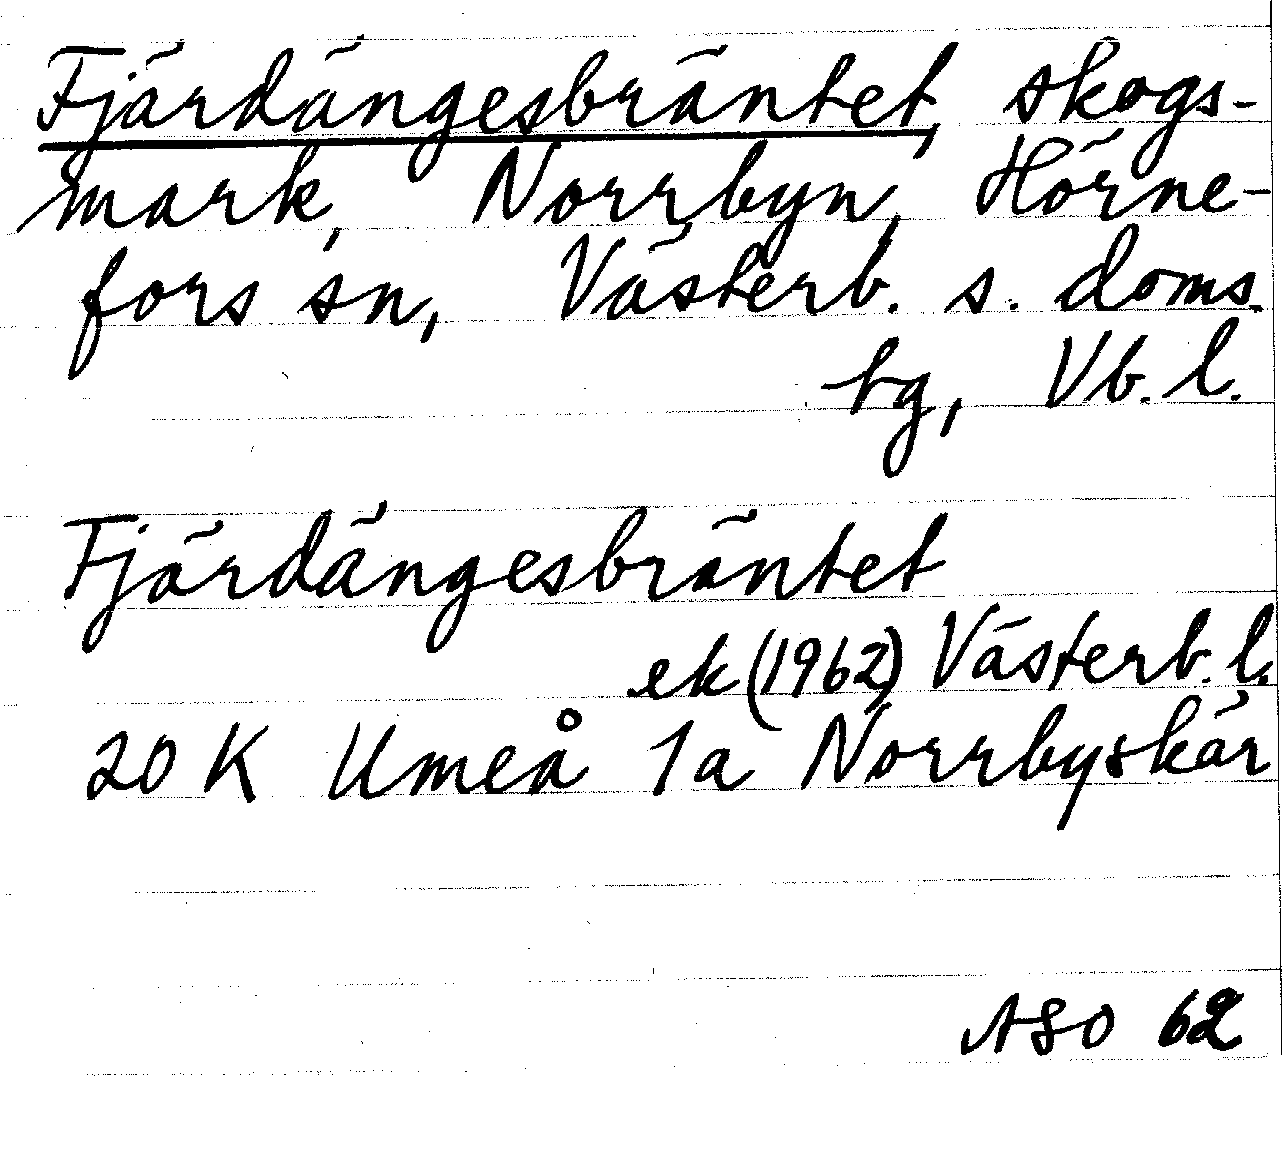 Fjärdängesbräntet, skogs-
mark, Norrbyn, Hörne-
fors sn, Västerb. s. doms.
bg, Vb. l.
Fjärdängesbräntet
ek (1962) Västerb. l.
20 K Umeå 1a Norrbyskär
ASO 62